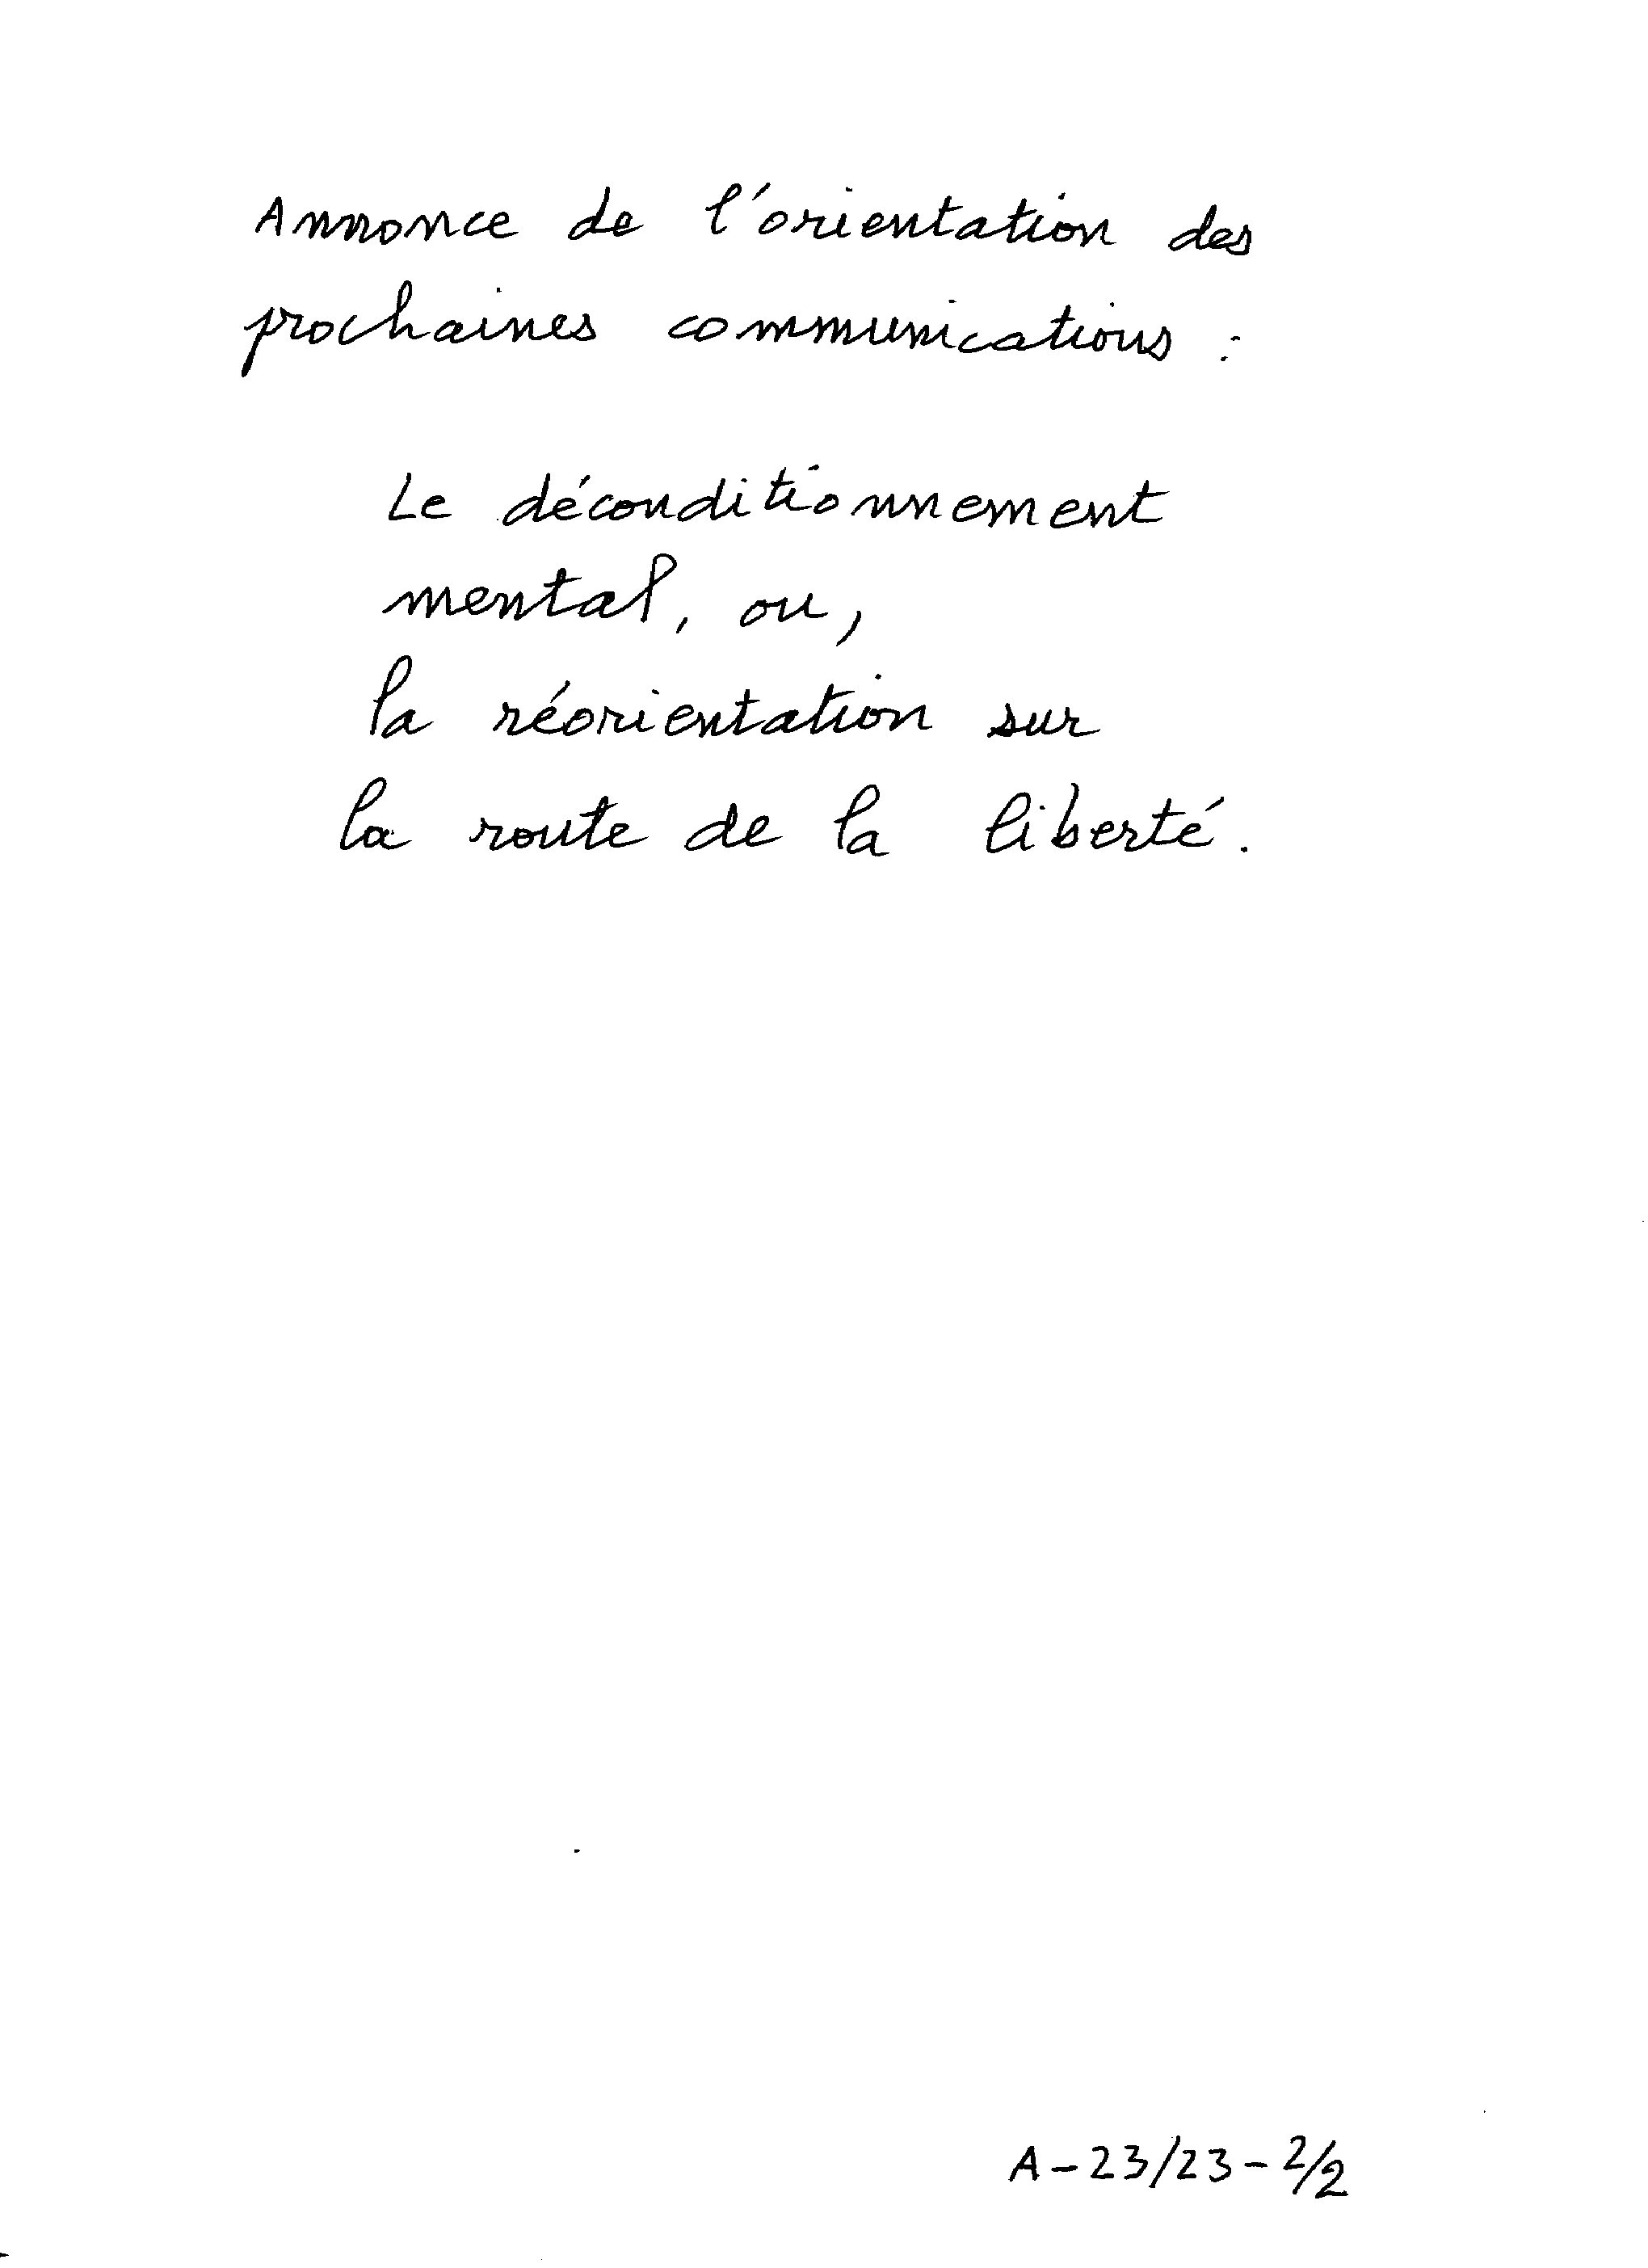 Annonce de l'orientation des
prochaines communications :
Le déconditionnement
mental, ou,
la réorientation sur
la route de la liberté.
A-23/23-2/2